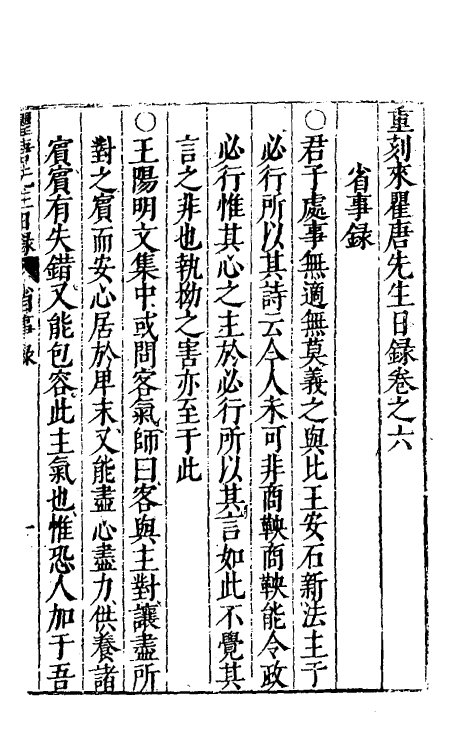 重刻來瞿唐先生日錄卷之六
省事錄
○君子處事無適無莫義之與比王安石新法主于
必行所以其詩云今人未可非商鞅商鞅能令政
必行惟其心之主於必行所以其言如此不覺其
言之非也執拗之害亦至于此
○王陽明文集中或問客氣師曰客與主對讓盡所
對之賓而安心居於卑末又能盡心盡力供養諸
賓賓有失錯又能包容此主氣也惟恐人加于吾
瞿唐先生日錄 省事錄 一